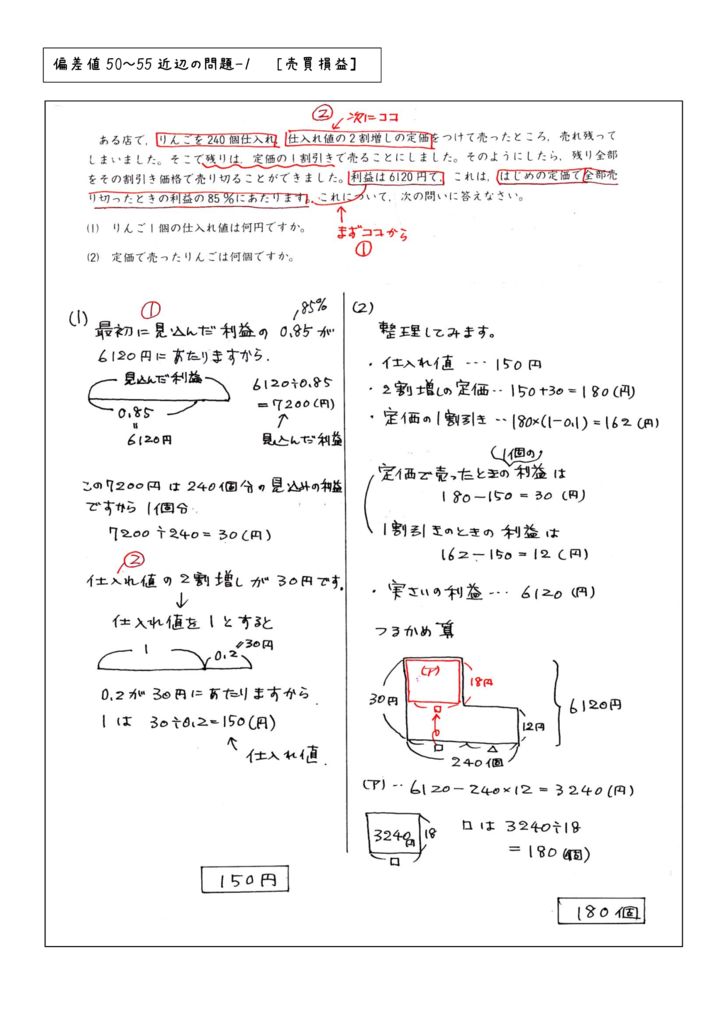 偏差値50～55近辺の問題-1 [売買損益]
② 次にココ
ある店で，りんごを240個仕入れ，仕入れ値の2割増しの定価をつけて売ったところ，売れ残って
しまいました。そこで残りは，定価の1割引きで売ることにしました。そのようにしたら，残り全部
をその割引き価格で売り切ることができました。利益は6120円で，これは，はじめの定価で全部売
り切ったときの利益の85％にあたります。これについて，次の問いに答えなさい。
(1) りんご1個の仕入れ値は何円ですか。
まずココから
①
(2) 定価で売ったりんごは何個ですか。
(1)
①
85%
最初に見込んだ利益の0.85が
6120円にあたりますから.
見込んだ利益
0.85
=
6120円
6120÷0.85
=7200(円)
見込んだ利益
この7200円は240個分の見込みの利益
ですから1個分.
7200÷240=30(円)
②
仕入れ値の2割増しが30円です.
仕入れ値を1とすると
1
0.2
=30円
0.2が30円にあたりますから.
1は 30÷0.2=150(円)
仕入れ値.
150円
(2)
整理してみます。
・仕入れ値 … 150円
・2割増しの定価‥150+30=180(円)
・定価の1割引き‥180×(1-0.1)=162(円)
1個の
定価で売ったときの利益は
180-150=30 (円)
1割引きのときの利益は
162-150=12 (円)
・実さいの利益… 6120(円)
つるかめ算
(ア)
18円
30円
□
12円
6120円
□
△
240個
(ア)‥6120-240×12=3240(円)
3240円
18
□
□は 3240÷18
=180(個)
180個